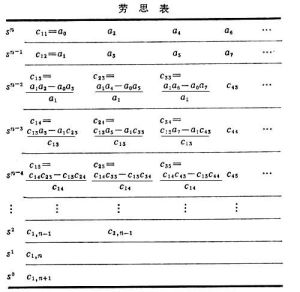 劳思表
s^n c_{11}=a_0 a_2 a_4 a_6 …
s^{n-1} c_{12}=a_1 a_3 a_5 a_7 …
s^{n-2} c_{13}= \frac{a_1a_2-a_0a_3}{a_1} c_{23}= \frac{a_1a_4-a_0a_5}{a_1} c_{33}= \frac{a_1a_6-a_0a_7}{a_1} c_{43} …
s^{n-3} c_{14}= \frac{c_{13}a_3-a_1c_{23}}{c_{13}} c_{24}= \frac{c_{13}a_5-a_1c_{33}}{c_{13}} c_{34}= \frac{c_{13}a_7-a_1c_{43}}{c_{13}} c_{44} …
s^{n-4} c_{15}= \frac{c_{14}c_{23}-c_{13}c_{24}}{c_{14}} c_{25}= \frac{c_{14}c_{33}-c_{13}c_{34}}{c_{14}} c_{35}= \frac{c_{14}c_{43}-c_{13}c_{44}}{c_{14}} c_{45} …
⋮ ⋮ ⋮ ⋮ ⋮
s^2 c_{1,n-1} c_{2,n-1}
s^1 c_{1,n}
s^0 c_{1,n+1}